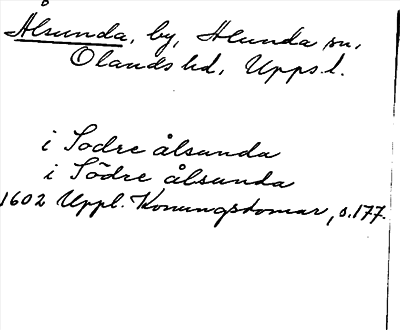 Ålsunda, by, Alunda sn,
Olands hd, Upps. l.
i Sodre ålsunda
i Södre ålsunda
1602 Uppl. Konungsdomar, s. 177.